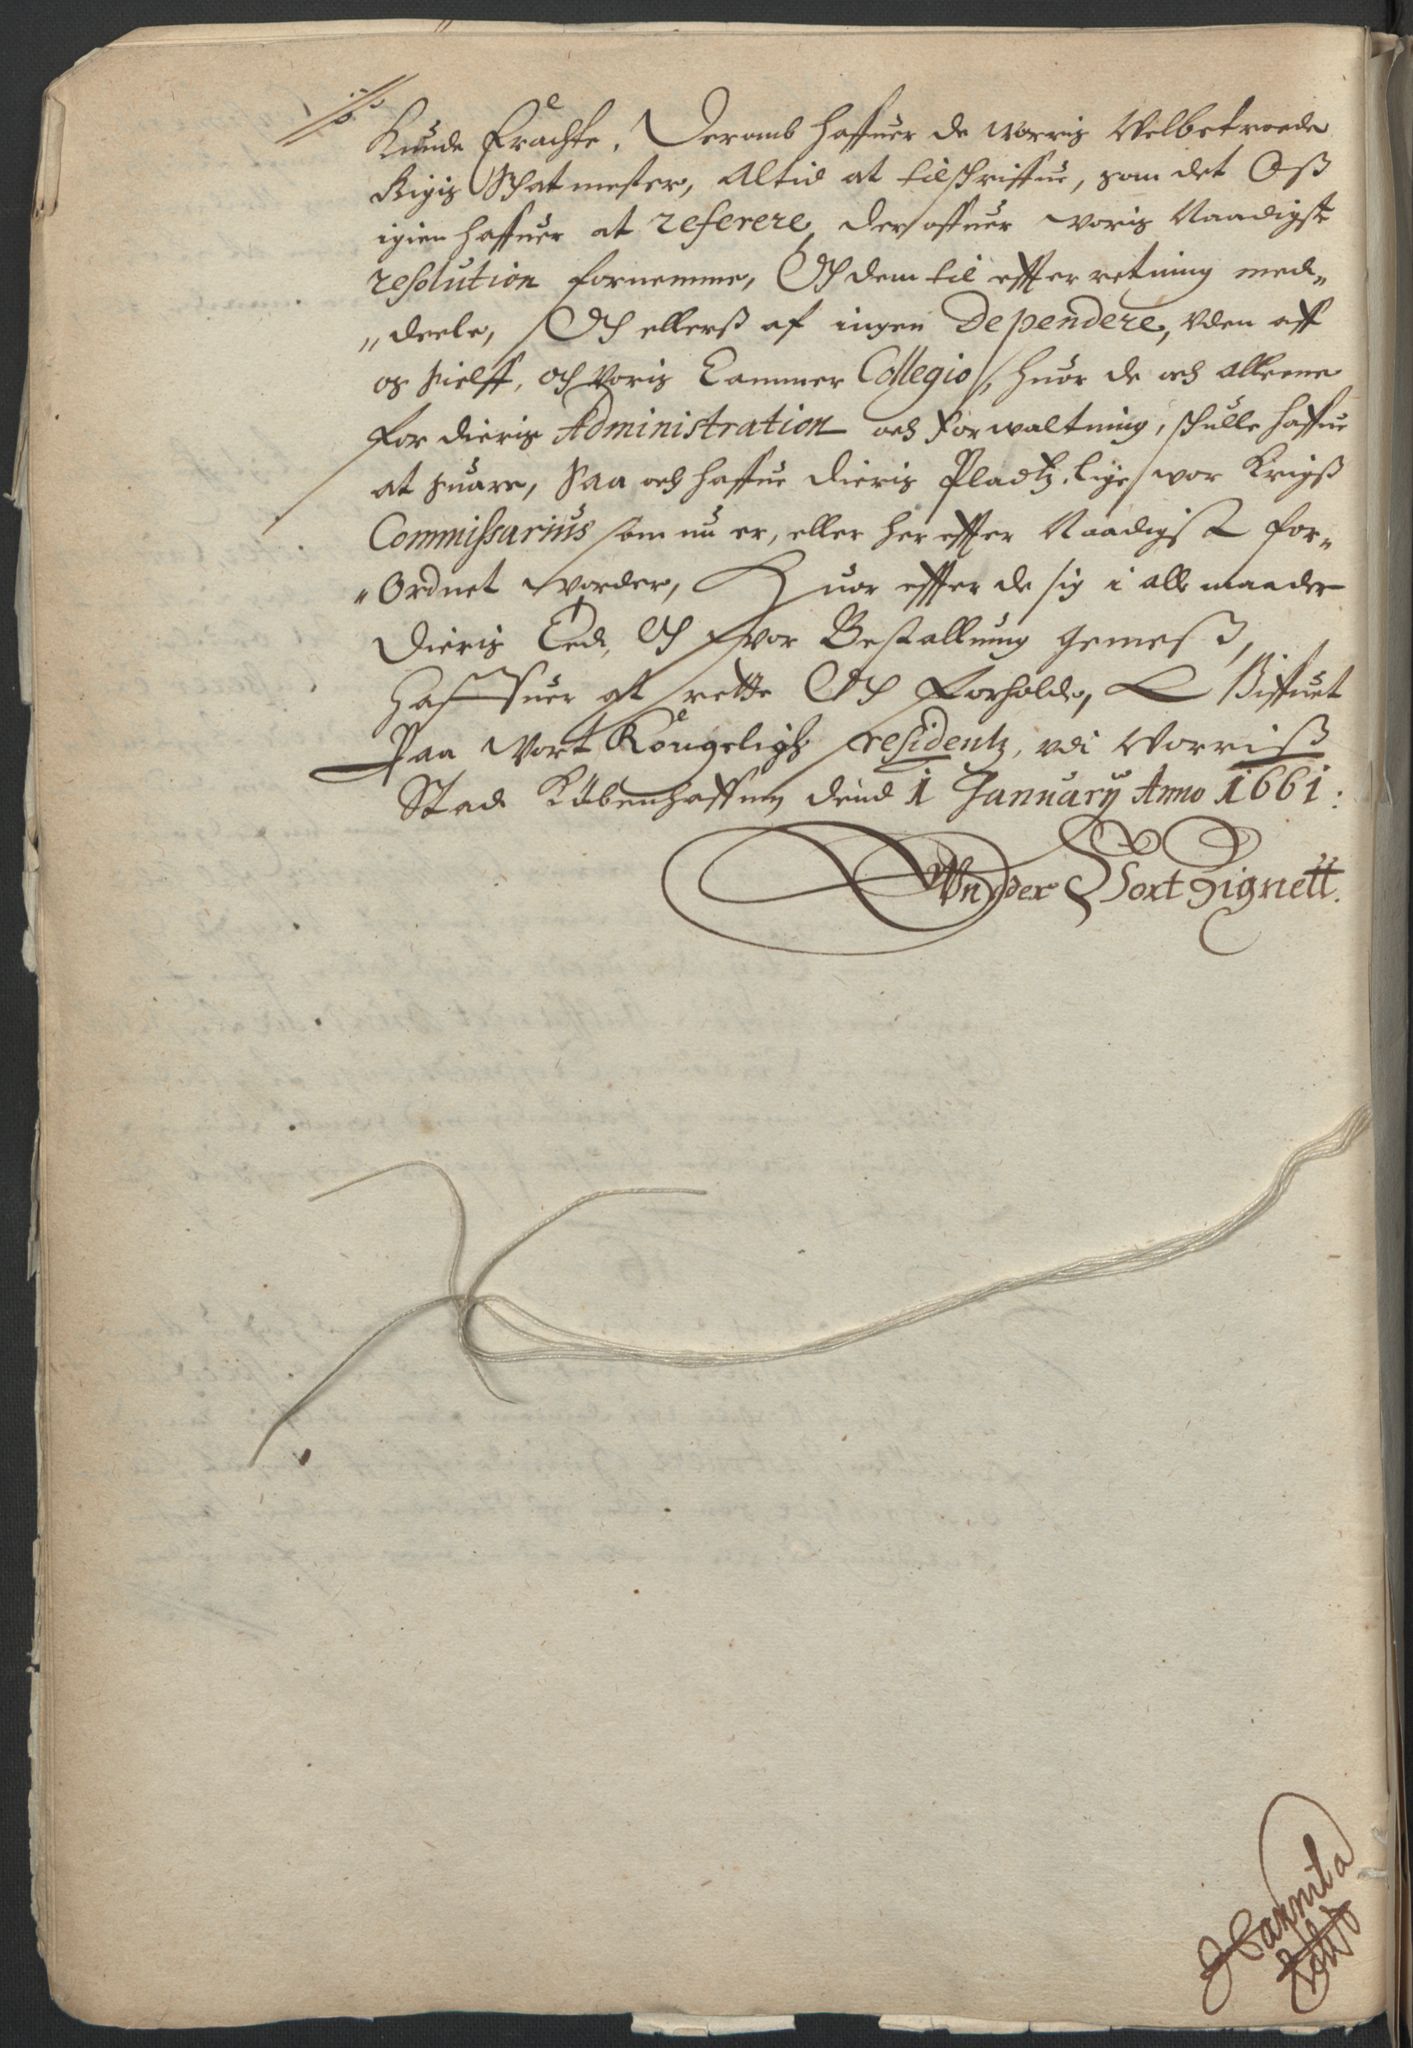 Kunde Erachte. Deromb haffuer de worris Velbetroede
Rigis Schatmester, Altid at tilschriffue, som det Oß
igien haffuer at referere, der offuer voris Naadigste
resolution fornemme, Och dem til effterretning med„
„deele, Och ellerß af ingen Dependere, vden aff
os sielff, och Voris Cammer Collegio, huor de och alleene
for dieris Administration och forwaltning, schulle haffue
at suare, Saa och haffue dieris Pladtz lige wor Krigß
Commissarius som nu er, eller her effter Naadigst for„
„Ordnet worder, Huor effter de sig i alle maader
dieris Eed, Och vor Bestallning gemeß,
haffuer at rette Och forholde, Giffuet
Paa Wort Kongeligh residentz, vdi Worriß
Stad Kiøbenhaffn dend 1 January Anno 1661:
Vnder Wort Zignett.